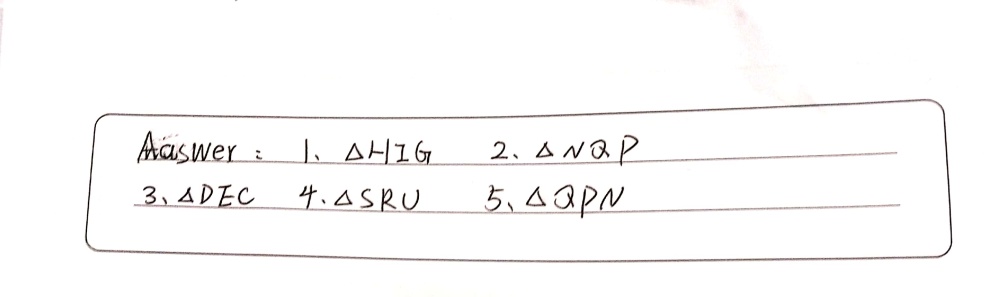 Aaswer: 1、△HIG 2、△NQP
3、△DEC 4.△SRU 5、△QPN